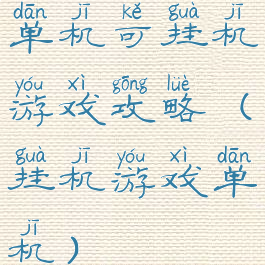 dān jī kě guà jī
单机可挂机
yóu xì gōng lüè
游戏攻略（
guà jī yóu xì dān
挂机游戏单
jī
机）